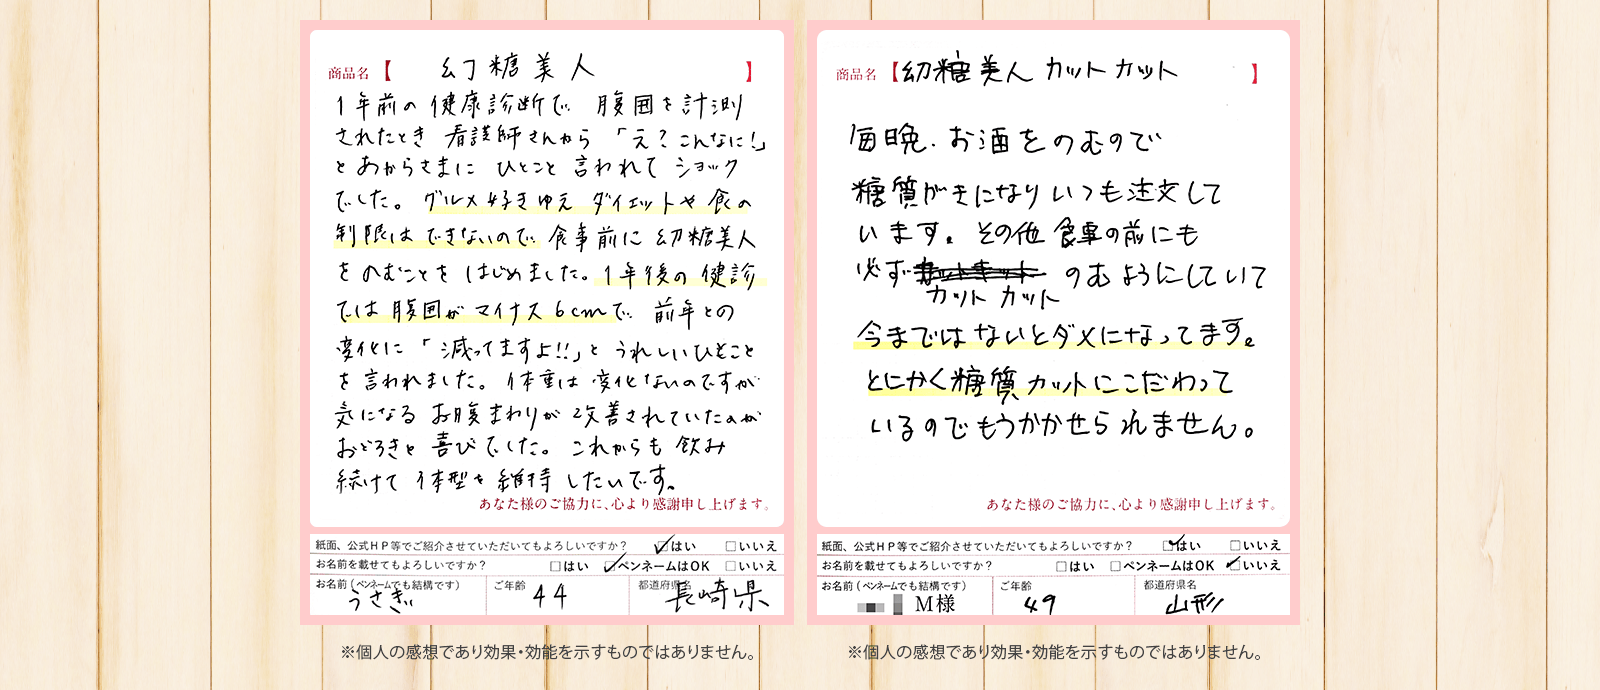 商品名【 幻糖美人 】
1年前の健康診断で 腹囲を計測
されたとき 看護師さんから 「え?こんなに!」
と あからさまに ひとこと 言われて ショック
でした。 グルメ好きゆえ ダイエットや食の
制限は できないので 食事前に 幻糖美人
を のむことを はじめました。 1年後の健診
では 腹囲が マイナス6cmで 前年との
変化に 「減ってますよ!!」と うれしいひとこと
を言われました。 体重は 変化ないのですが
気になる お腹まわりが 改善されていたのが
おどろきと 喜びでした。 これからも 飲み
続けて 体型を 維持 したいです。
あなた様のご協力に、心より感謝申し上げます。
紙面、公式HP等でご紹介させていただいてもよろしいですか? はい いいえ
お名前を載せてもよろしいですか? はい ペンネームはOK いいえ
お名前(ペンネームでも結構です) ご年齢 都道府県名
うさぎ 44 長崎県
※個人の感想であり効果・効能を示すものではありません。
商品名【幻糖美人 カット カット 】
毎晩、お酒をのむので
糖質がきになり いつも注文して
います。その他 食事の前にも
必ず
カット カット のむようにしていて
今まではないとダメになってます。
とにかく糖質カットにこだわって
いるのでもうかかせられません。
あなた様のご協力に、心より感謝申し上げます。
紙面、公式HP等でご紹介させていただいてもよろしいですか? はい いいえ
お名前を載せてもよろしいですか? はい ペンネームはOK いいえ
お名前(ペンネームでも結構です) ご年齢 都道府県名
M様 49 山形
※個人の感想であり効果・効能を示すものではありません。